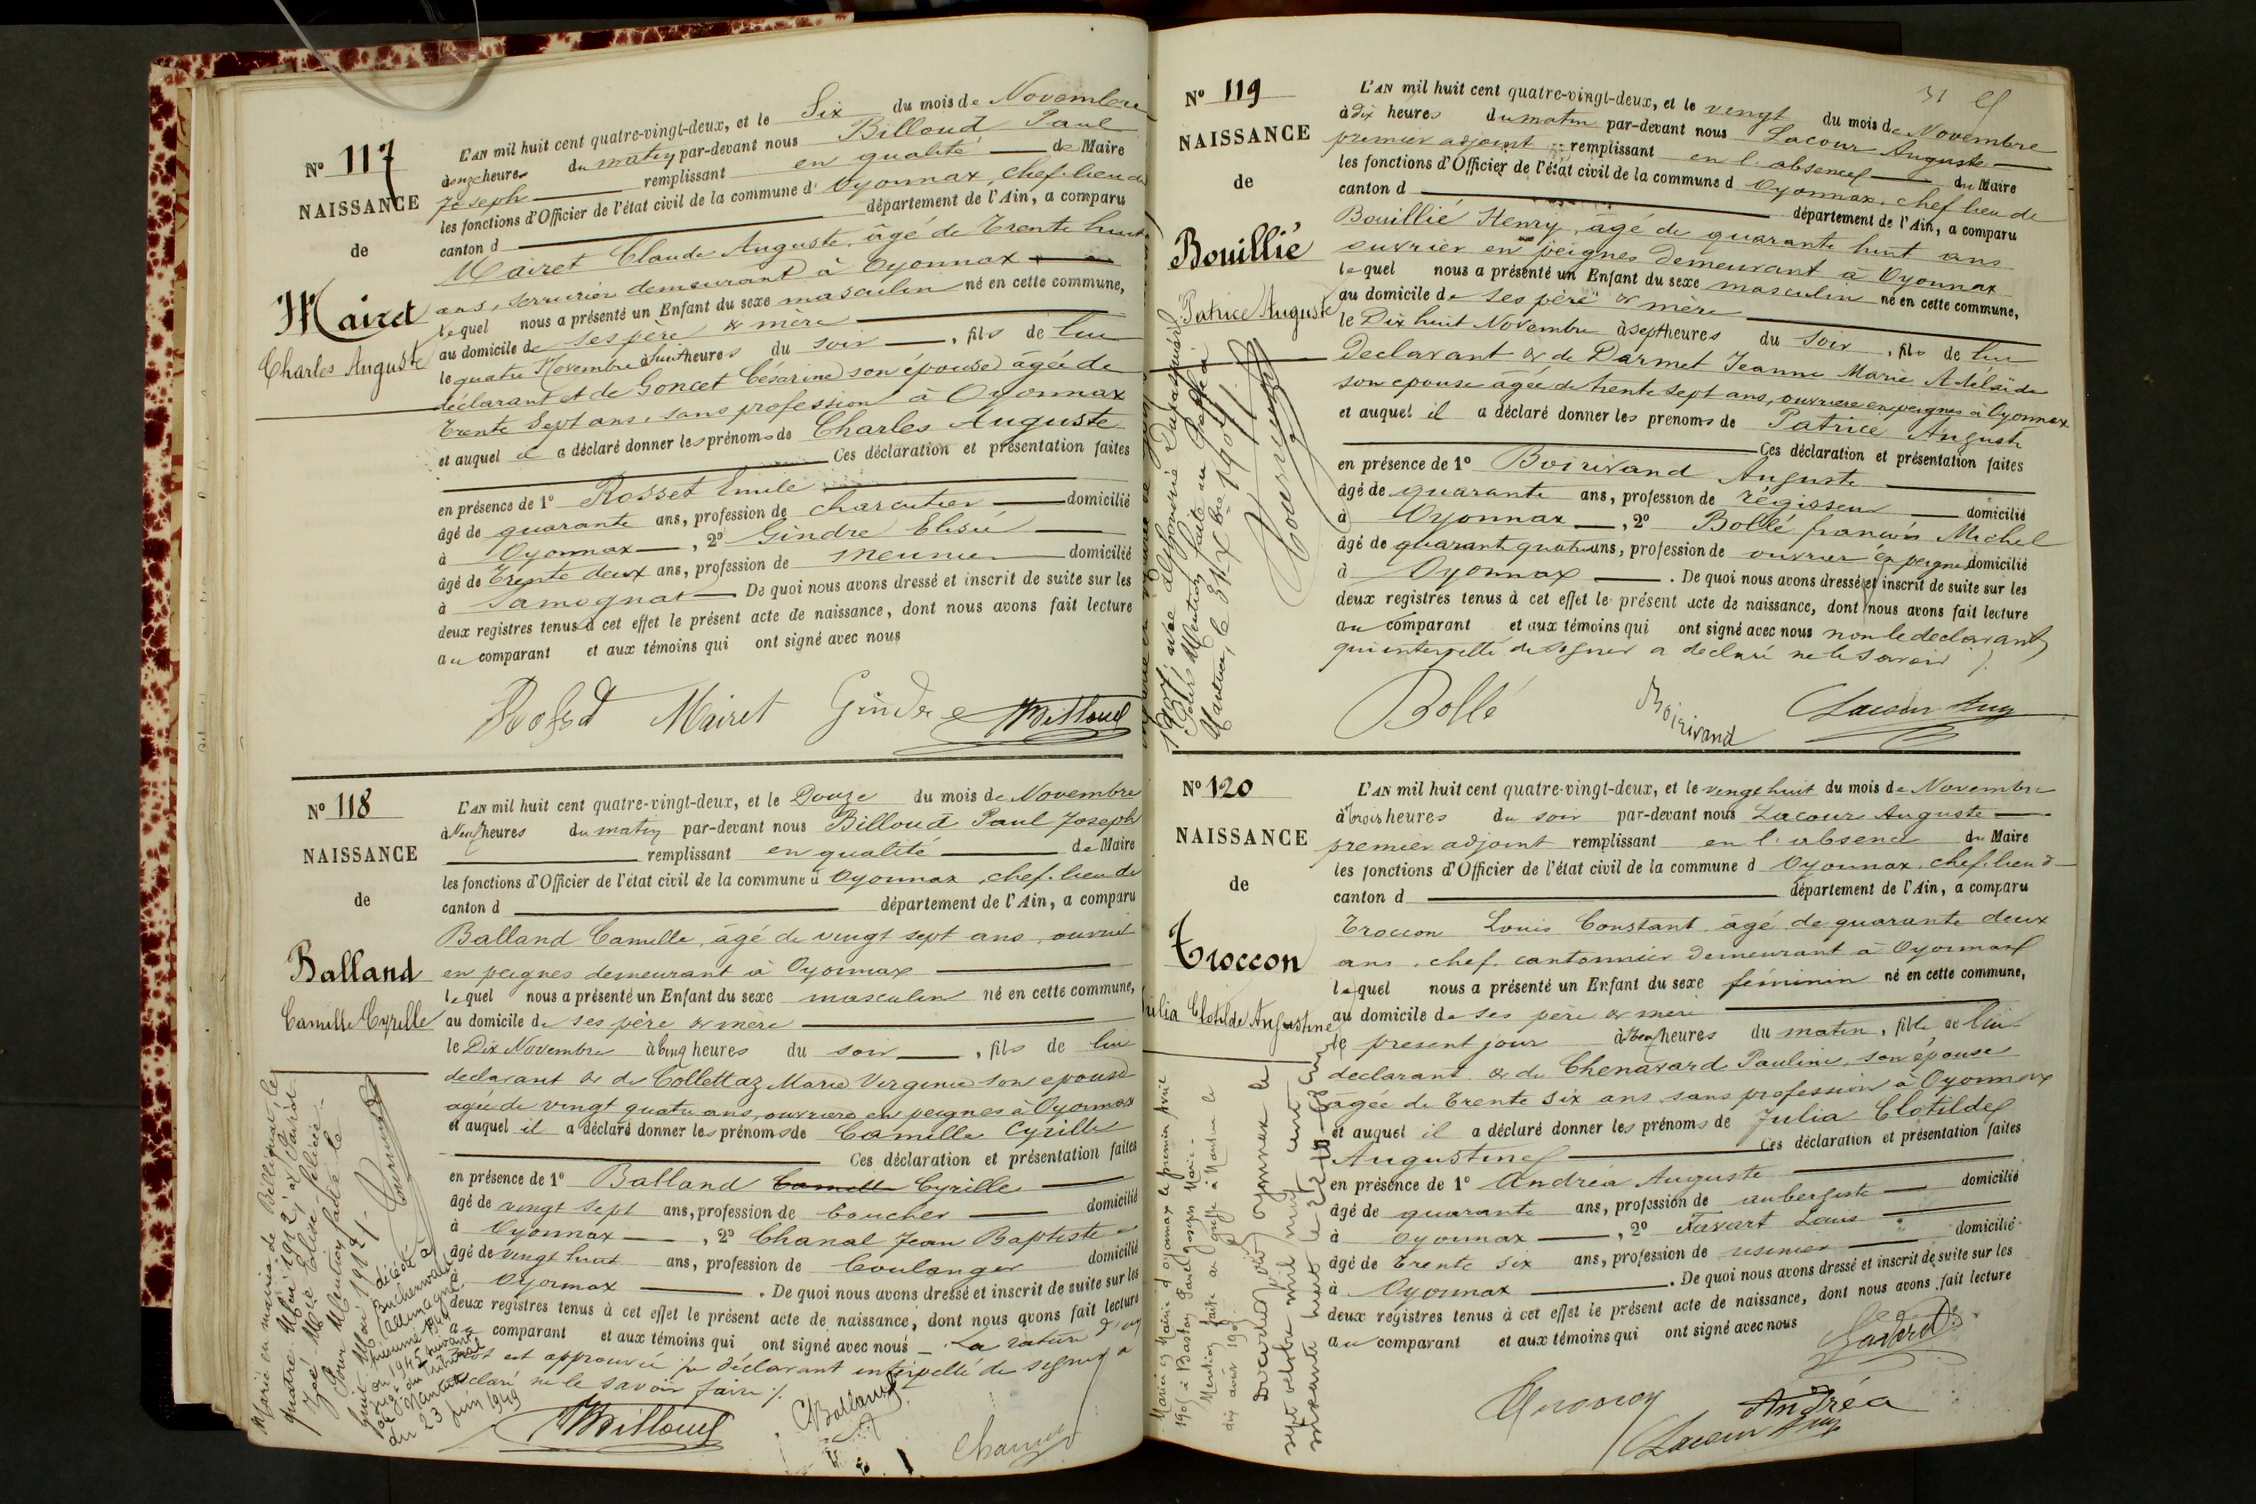 N° 117
NAISSANCE
de
Mairet
Charles Auguste
L'AN mil huit cent quatre-vingt-deux, et le Six du mois de Novembre
à onze heures du matin par-devant nous Billoud Paul
Joseph remplissant en qualité de Maire
les fonctions d'Officier de l'état civil de la commune d'Oyonnax, chef-lieu de
canton d département de l'Ain, a comparu
Mairet Claude Auguste, âgé de Trente huit
ans, serrurier demeurant à Oyonnax
lequel nous a présenté un Enfant du sexe masculin né en cette commune,
au domicile de ses père & mère
le quatre Novembre à huit heures du soir, fils de lui
déclarant et de Goncet Césarine son épouse âgée de
Trente Sept ans, sans profession à Oyonnax
et auquel il a déclaré donner les prénoms de Charles Auguste
Ces déclaration et présentation faites
en présence de 1° Rosset Emile
âgé de quarante ans, profession de charcutier domicilié
à Oyonnax, 2° Gindre Elisée
âgé de Trente deux ans, profession de meunier domicilié
à Samognat De quoi nous avons dressé et inscrit de suite sur les
deux registres tenus à cet effet le présent acte de naissance, dont nous avons fait lecture
au comparant et aux témoins qui ont signé avec nous
Rosset Mairet Gindre Billoud
N° 118
NAISSANCE
de
Balland
Camille Cyrille
L'AN mil huit cent quatre-vingt-deux, et le Douze du mois de Novembre
à Neuf heures du matin par-devant nous Billoud Paul Joseph
remplissant en qualité de Maire
les fonctions d'Officier de l'état civil de la commune d Oyonnax, chef-lieu de
canton d département de l'Ain, a comparu
Balland Camille, âgé de vingt sept ans, ouvrier
en peignes demeurant à Oyonnax
lequel nous a présenté un Enfant du sexe masculin né en cette commune,
au domicile de ses père & mère
le Dix Novembre à cinq heures du soir, fils de lui
déclarant & de Collettaz Marie Virginie son épouse
agée de vingt quatre ans, ouvrière en peignes à Oyonnax
et auquel il a déclaré donner les prénoms de Camille Cyrille
Ces déclaration et présentation faites
en présence de 1° Balland Camille Cyrille
âgé de vingt sept ans, profession de boucher domicilié
à Oyonnax, 2° Chanal Jean Baptiste
âgé de vingt huit ans, profession de boulanger domicilié
Oyonnax. De quoi nous avons dressé et inscrit de suite sur les
deux registres tenus à cet effet le présent acte de naissance, dont nous avons fait lecture
au comparant et aux témoins qui ont signé avec nous - La rature d'un
mot est approuvée, le déclarant interpellé de signer a
déclaré ne le savoir faire ./.
Billoud Balland Chanal
Marié en mairie de Bellignat le
quatre Mai 1912, à Clavid
Zoé Marie Elise Félicie -
Pour Mention faite le
huit Mai 1912 /-
Décédé à
Buchenwald
Allemagne
en 1945 suivant
jugt du tribunal
de Nantua
du 23 juin 1949
N° 119
NAISSANCE
de
Bouillié
Patrice Auguste
L'AN mil huit cent quatre-vingt-deux, et le vingt du mois de Novembre
à dix heures du matin par-devant nous Lacour Auguste
premier adjoint remplissant en l'absence du Maire
les fonctions d'Officier de l'état civil de la commune d Oyonnax, chef lieu de
canton d département de l'Ain, a comparu
Bouillié Henry, âgé de quarante huit ans
ouvrier en peignes demeurant à Oyonnax
lequel nous a présenté un Enfant du sexe masculin né en cette commune,
au domicile de ses père & mère
le Dix huit Novembre à sept heures du soir, fils de lui
Déclarant & de Darmet Jeanne Marie Adélaïde
son épouse âgée de trente sept ans, ouvrière en peignes à Oyonnax
et auquel il a déclaré donner les prenoms de Patrice Auguste
Ces déclaration et présentation faites
en présence de 1° Boirivand Auguste
âgé de quarante ans, profession de régisseur domicilié
à Oyonnax, 2° Bollé françois Michel
âgé de quarante quatre ans, profession de ouvrier en peignes domicilié
à Oyonnax. De quoi nous avons dressé et inscrit de suite sur les
deux registres tenus à cet effet le présent acte de naissance, dont nous avons fait lecture
au comparant et aux témoins qui ont signé avec nous non le déclarant
qui interpellé de signer a déclaré ne le savoir ./.
Bollé Boirivand Lacour Aug
1907, avec
Pour Mention faite au Greffe à
Nantua, le 1907 /.
N° 120
NAISSANCE
de
Troccon
Julia Clotilde Augustine
L'AN mil huit cent quatre-vingt-deux, et le vingt huit du mois de Novembre
à trois heures du soir par-devant nous Lacour Auguste
premier adjoint remplissant en l'absence du Maire
les fonctions d'Officier de l'état civil de la commune d Oyonnax, chef-lieu d
canton d département de l'Ain, a comparu
Troccon Louis Constant âgé de quarante deux
ans, chef cantonnier demeurant à Oyonnax
lequel nous a présenté un Enfant du sexe féminin né en cette commune,
au domicile de ses père & mère
le présent jour à heures du matin, fille de lui
déclarant & de Chenavard Pauline, son épouse
âgée de Trente six ans sans profession à Oyonnax
et auquel il a déclaré donner les prénoms de Julia Clotilde
Augustine Ces déclaration et présentation faites
en présence de 1° Andréa Auguste
âgé de quarante ans, profession de aubergiste domicilié
à Oyonnax, 2° Favart Louis
âgé de Trente six ans, profession de usinier domicilié
à Oyonnax. De quoi nous avons dressé et inscrit de suite sur les
deux registres tenus à cet effet le présent acte de naissance, dont nous avons fait lecture
au comparant et aux témoins qui ont signé avec nous
Troccon Andréa Lacour Aug
Mariée en Mairie d'Oyonnax le premier Avril
1905 à Marie -
Mention faite au greffe à Nantua le
dix avril 1905
Décédée à Oyonnax le
sept octobre mil neuf cent
soixante